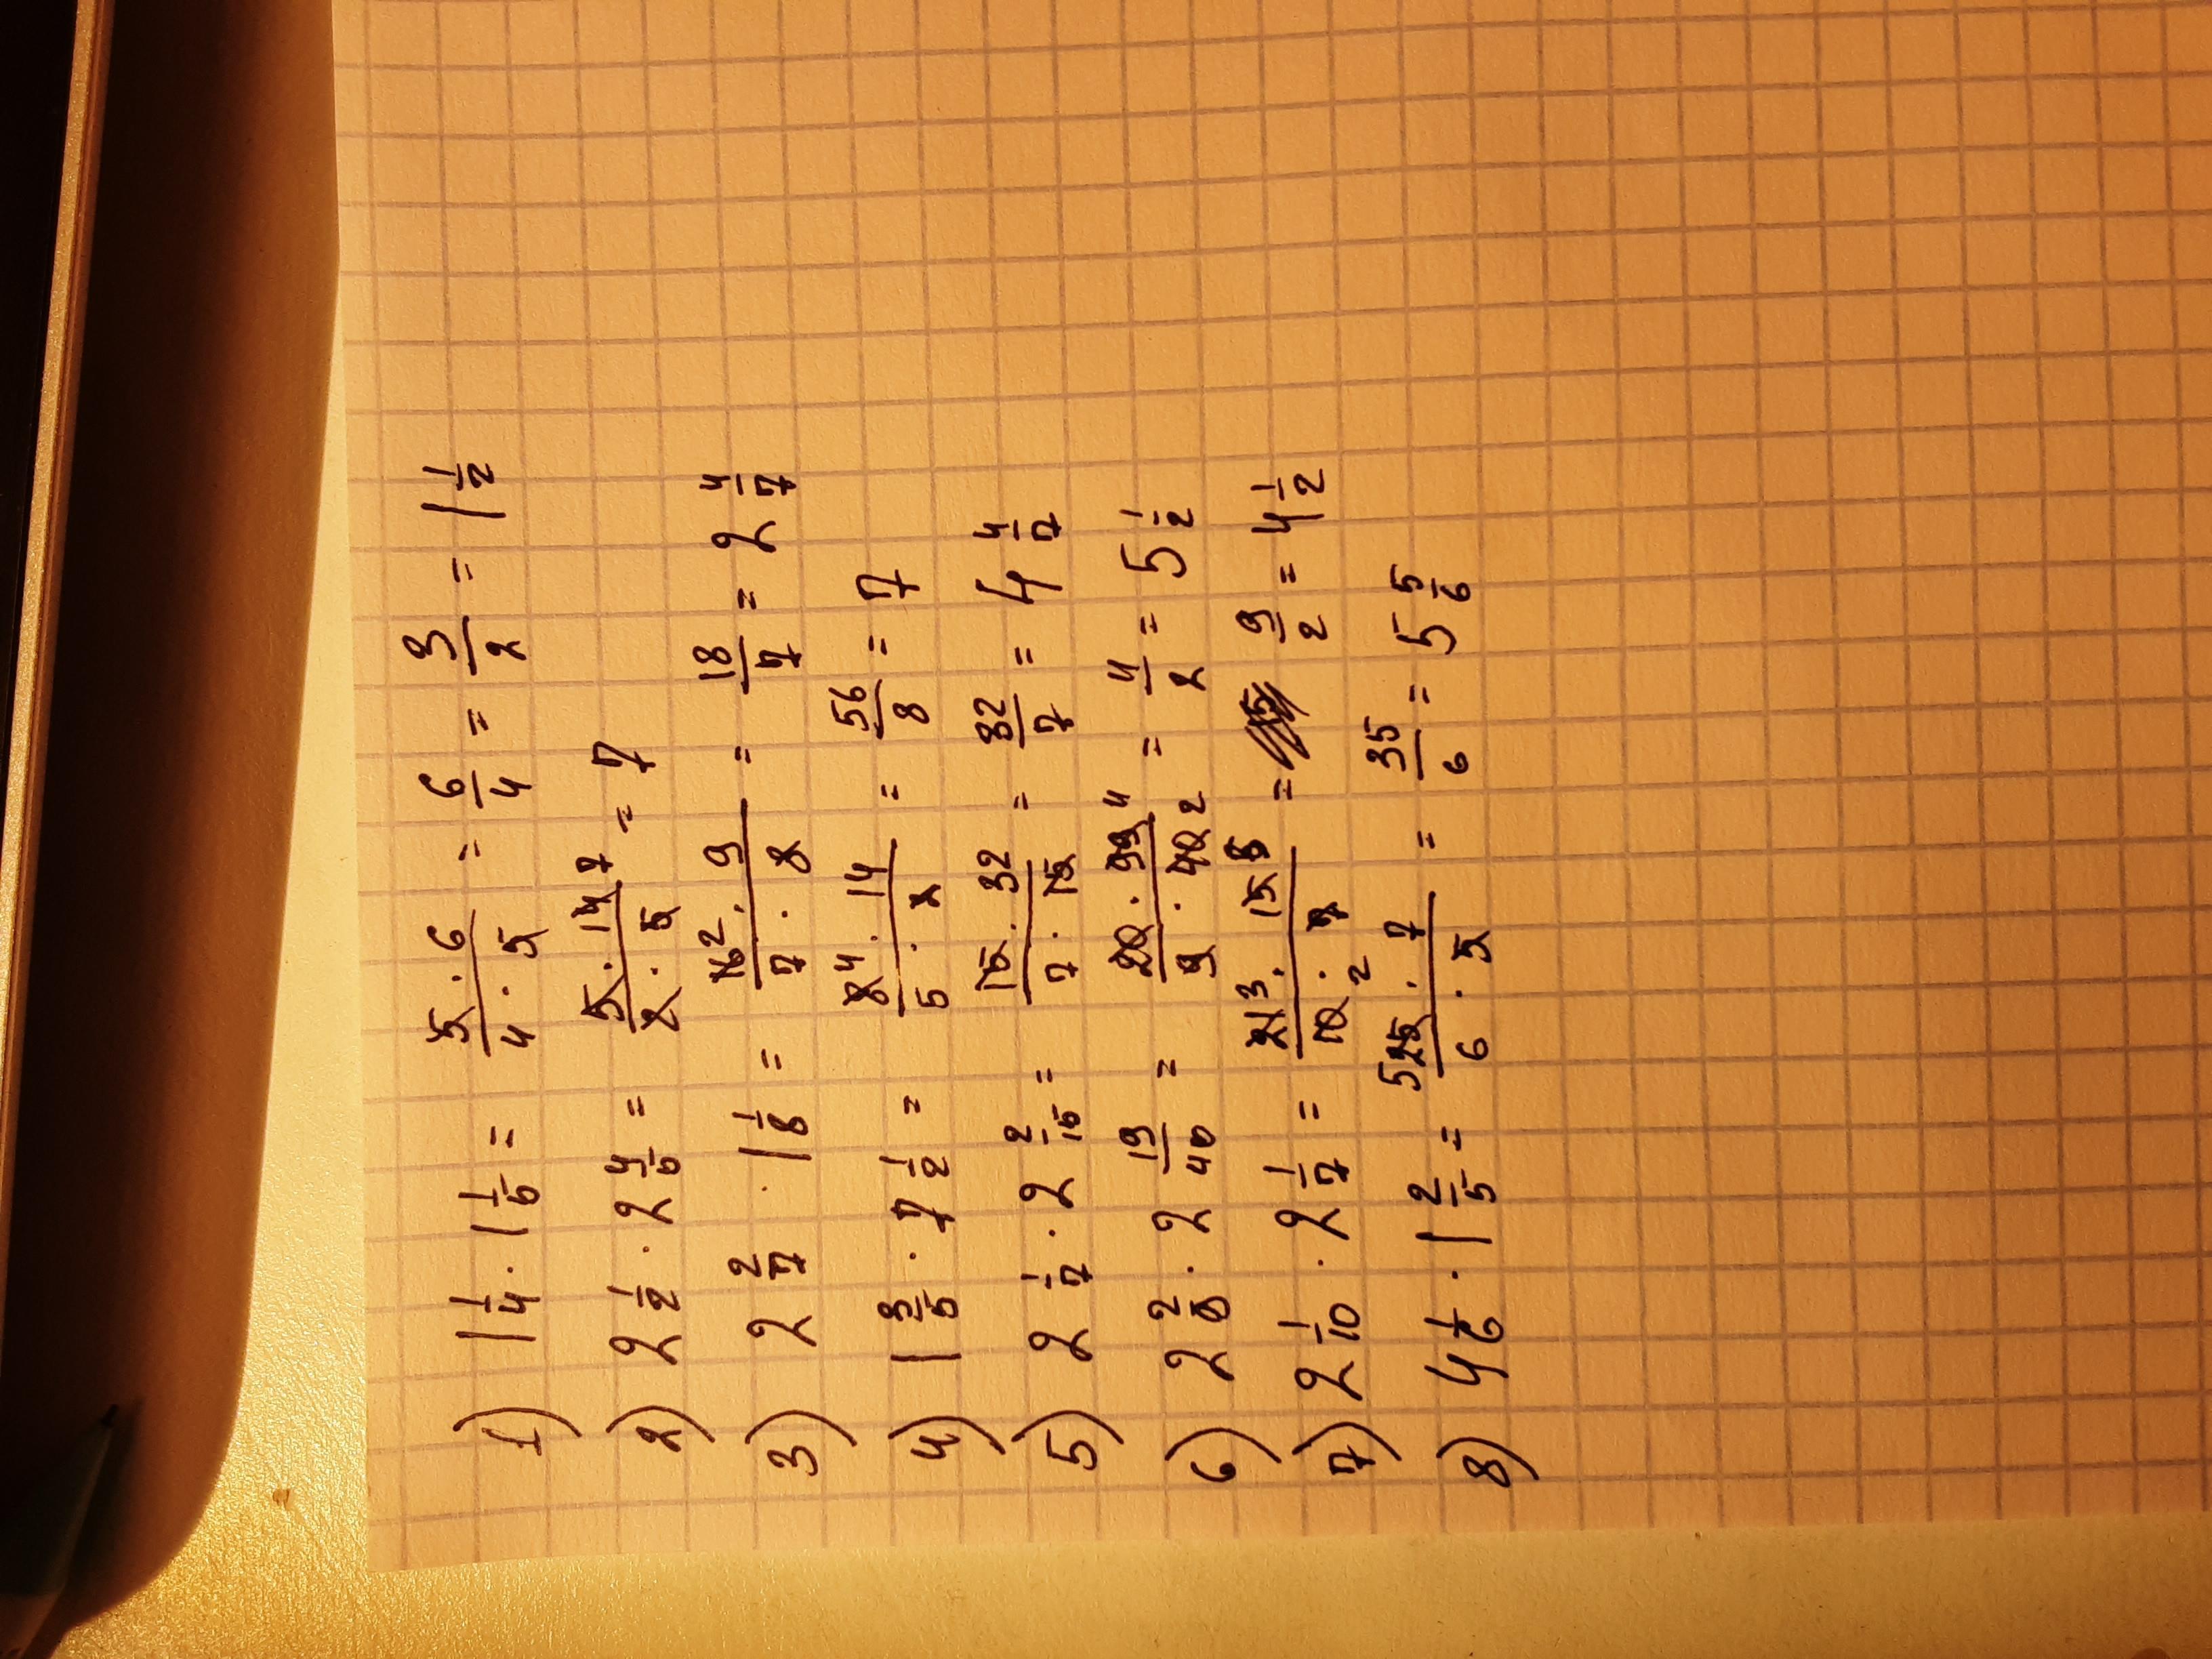 1) 1 1/4 · 1 1/5 = (5 · 6)/(4 · 5) = 6/4 = 3/2 = 1 1/2
2) 2 1/2 · 2 4/5 = (5 · 14 7)/(2 · 5) = 7
3) 2 2/7 · 1 1/8 = (16 2 · 9)/(7 · 8) = 18/7 = 2 4/7
4) 1 3/5 · 7 1/2 = (8 4 · 14)/(5 · 2) = 56/8 = 7
5) 2 1/7 · 2 2/15 = (15 · 32)/(7 · 15) = 32/7 = 4 4/7
6) 2 2/9 · 2 19/40 = (20 · 99 11)/(9 · 40 2) = 11/2 = 5 1/2
7) 2 1/10 · 2 1/7 = (21 3 · 15 3)/(10 2 · 7) = 9/2 = 4 1/2
8) 4 1/6 · 1 2/5 = (5 25 · 7)/(6 · 5) = 35/6 = 5 5/6